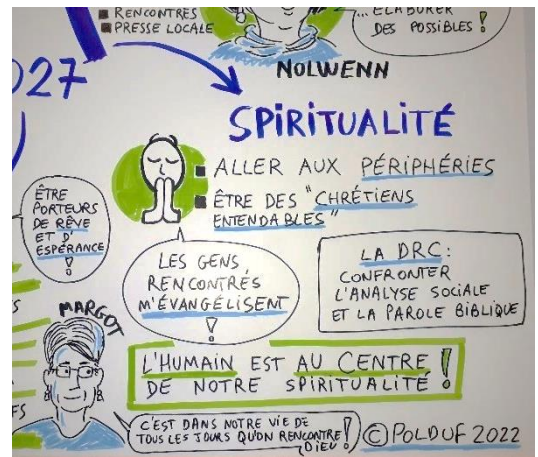 ■ RENCONTRES
■ PRESSE LOCALE
... ÉLABORER
DES POSSIBLES !
NOLWENN
027
SPIRITUALITÉ
■ ALLER AUX PÉRIPHÉRIES
■ ÊTRE DES "CHRÉTIENS
ENTENDABLES"
ÊTRE
PORTEURS
DE RÊVE
ET D'
ESPÉRANCE
!
LES GENS
RENCONTRÉS
M'ÉVANGÉLISENT
!
LA DRC :
CONFRONTER
L'ANALYSE SOCIALE
ET LA PAROLE BIBLIQUE
S
MARGOT
L'HUMAIN EST AU CENTRE
DE NOTRE SPIRITUALITÉ !
FS
C'EST DANS NOTRE VIE DE
TOUS LES JOURS QU'ON RENCONTRE
DIEU !
© POLDUF 2022